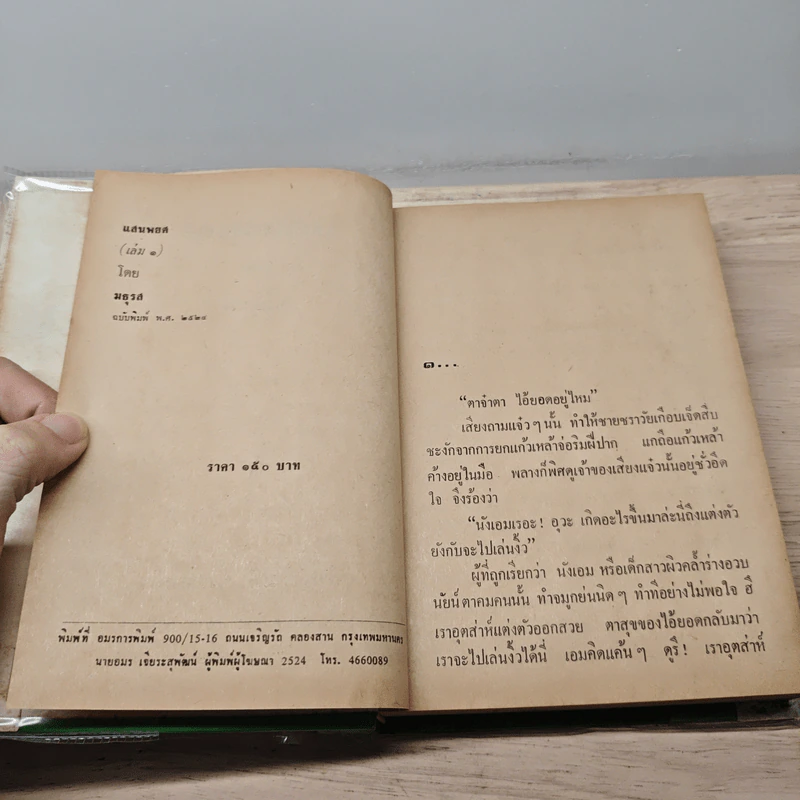 แสนพยศ
(เล่ม ๑)
โดย
มธุรส
ฉบับพิมพ์ พ.ศ. ๒๕๒๔
ราคา ๑๕๐ บาท
พิมพ์ที่ อมรการพิมพ์ 900/15-16 ถนนเจริญรัถ คลองสาน กรุงเทพมหานคร
นายอมร เจียระสุพัฒน์ ผู้พิมพ์ผู้โฆษณา 2524 โทร. 4660089
๑...
“ตาจ๋าตา ไอ้ยอดอยู่ไหม”
เสียงถามแจ๋ว ๆ นั้น ทำให้ชายชราวัยเกือบเจ็ดสิบ
ชะงักจากการยกแก้วเหล้าจ่อริมฝีปาก แกถือแก้วเหล้า
ค้างอยู่ในมือ พลางก็พิศดูเจ้าของเสียงแจ๋วนั้นอยู่ชั่วอึด
ใจ จึงร้องว่า
“นังเอมเรอะ! อุวะ เกิดอะไรขึ้นมาล่ะนี่ถึงแต่งตัว
ยังกับจะไปเล่นงิ้ว”
ผู้ที่ถูกเรียกว่า นังเอม หรือเด็กสาวผิวคล้ำร่างอวบ
นัยน์ตาคมคนนั้น ทำจมูกย่นนิด ๆ ทำทีอย่างไม่พอใจ ฮึ
เราอุตส่าห์แต่งตัวออกสวย ตาสุขของไอ้ยอดกลับมาว่า
เราจะไปเล่นงิ้วได้นี่ เอมคิดแค้น ๆ ดูรึ! เราอุตส่าห์